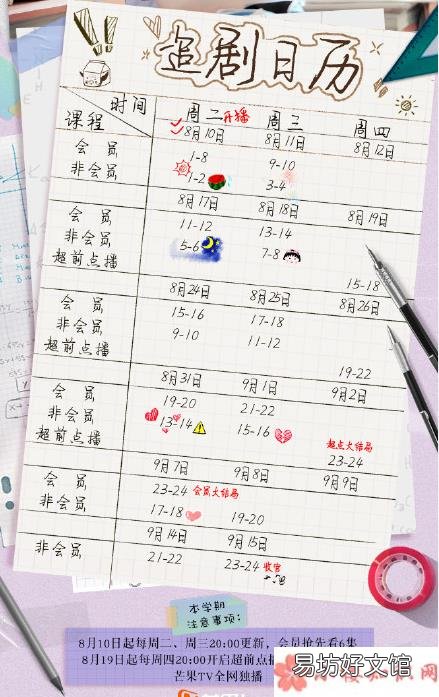 追剧日历
时间 周二开播 周三 周四
课程 8月10日 8月11日 8月12日
会员 1-8 9-10
非会员 1-2 3-4
8月17日 8月18日 8月19日
会员 11-12 13-14
非会员 5-6 7-8
超前点播 15-18
8月24日 8月25日 8月26日
会员 15-16 17-18
非会员 9-10 11-12
超前点播 19-22
8月31日 9月1日 9月2日
会员 19-20 21-22
非会员 13-14 15-16
超前点播 超点大结局 23-24
9月7日 9月8日 9月9日
会员 23-24 会员大结局
非会员 17-18 19-20
9月14日 9月15日
非会员 21-22 23-24 收官
本学期
注意事项:
8月10日起每周二、周三20:00更新,会员抢先看6集
8月19日起每周四20:00开启超前点播
芒果TV全网独播
易坊好文馆